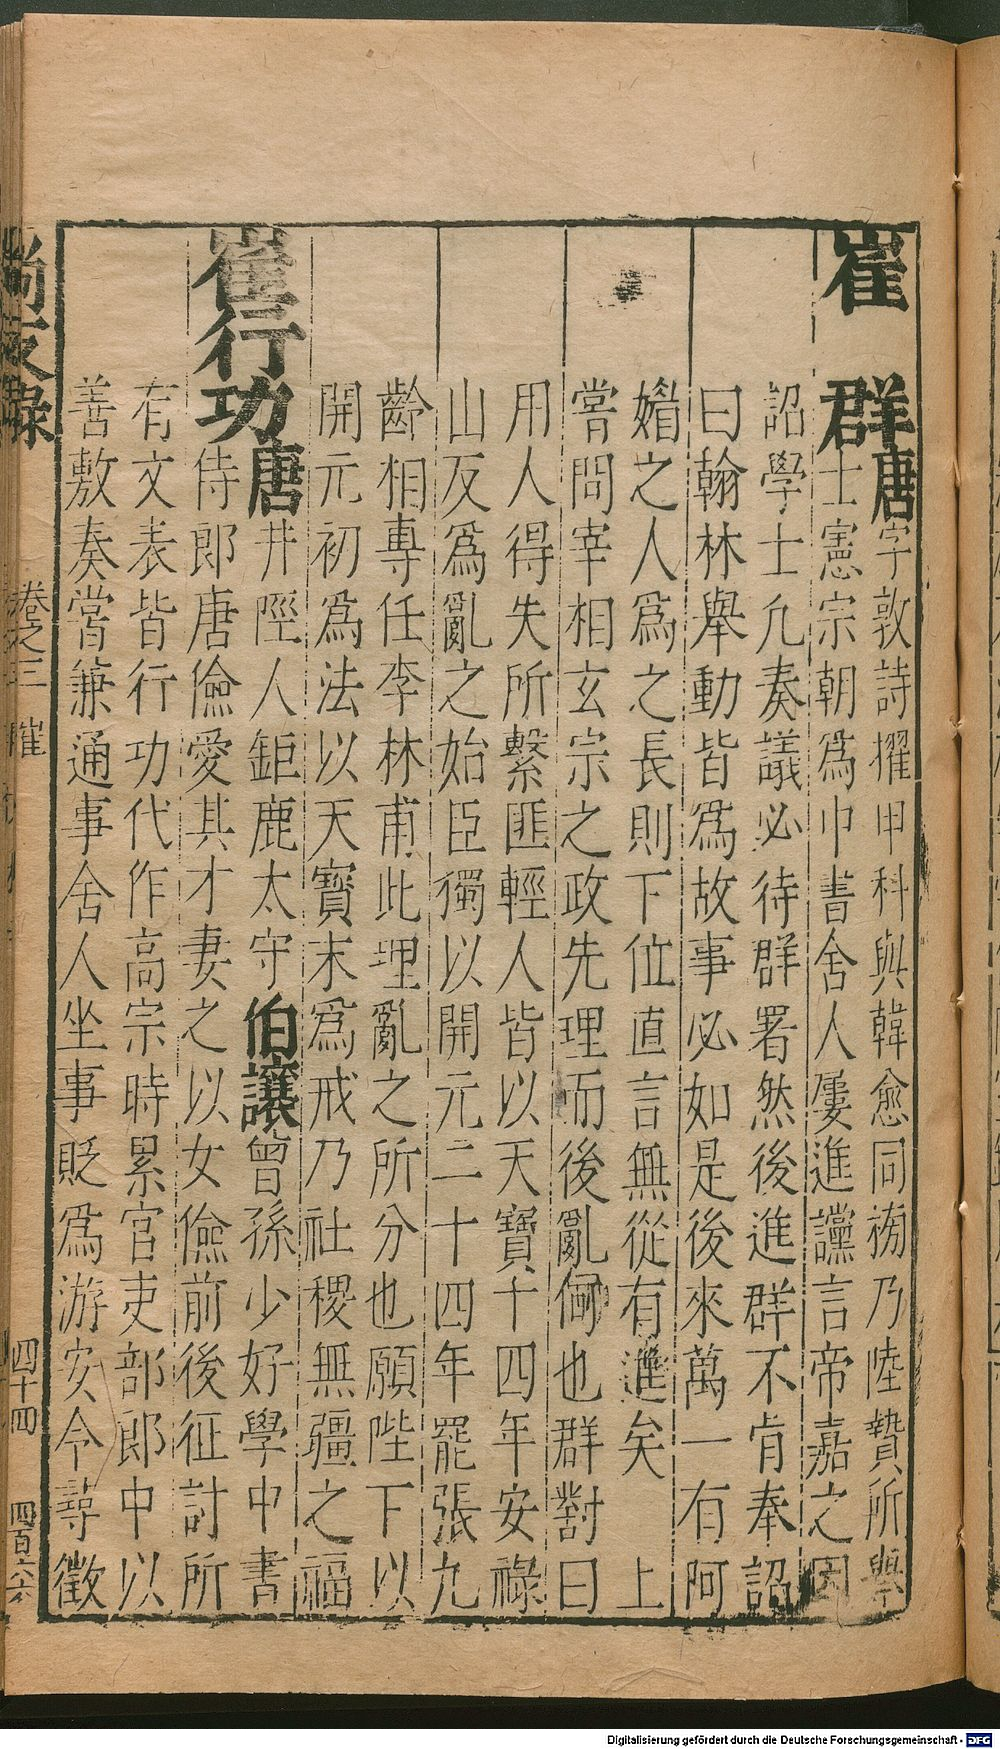 崔群唐字敦詩擢甲科與韓愈同牓乃陸贄所舉
士憲宗朝爲中書舍人屢進讜言帝嘉之因
詔學士凡奏議必待群署然後進群不肯奉詔
曰翰林舉動皆爲故事必如是後來萬一有阿
媚之人爲之長則下位直言無從有進矣上
嘗問宰相玄宗之政先理而後亂何也群對曰
用人得失所繫匪輕人皆以天寶十四年安祿
山反爲亂之始臣獨以開元二十四年罷張九
齡相專任李林甫此理亂之所分也願陛下以
開元初爲法以天寶末爲戒乃社稷無疆之福
崔行功唐井陘人鉅鹿太守伯讓曾孫少好學中書
侍郎唐儉愛其才妻之以女儉前後征討所
有文表皆行功代作高宗時累官吏部郎中以
善敷奏嘗兼通事舍人坐事貶爲游安令尋徵
尚友錄 卷之三 崔 四十四 四百六六
Digitalisierung gefördert durch die Deutsche Forschungsgemeinschaft - DFG